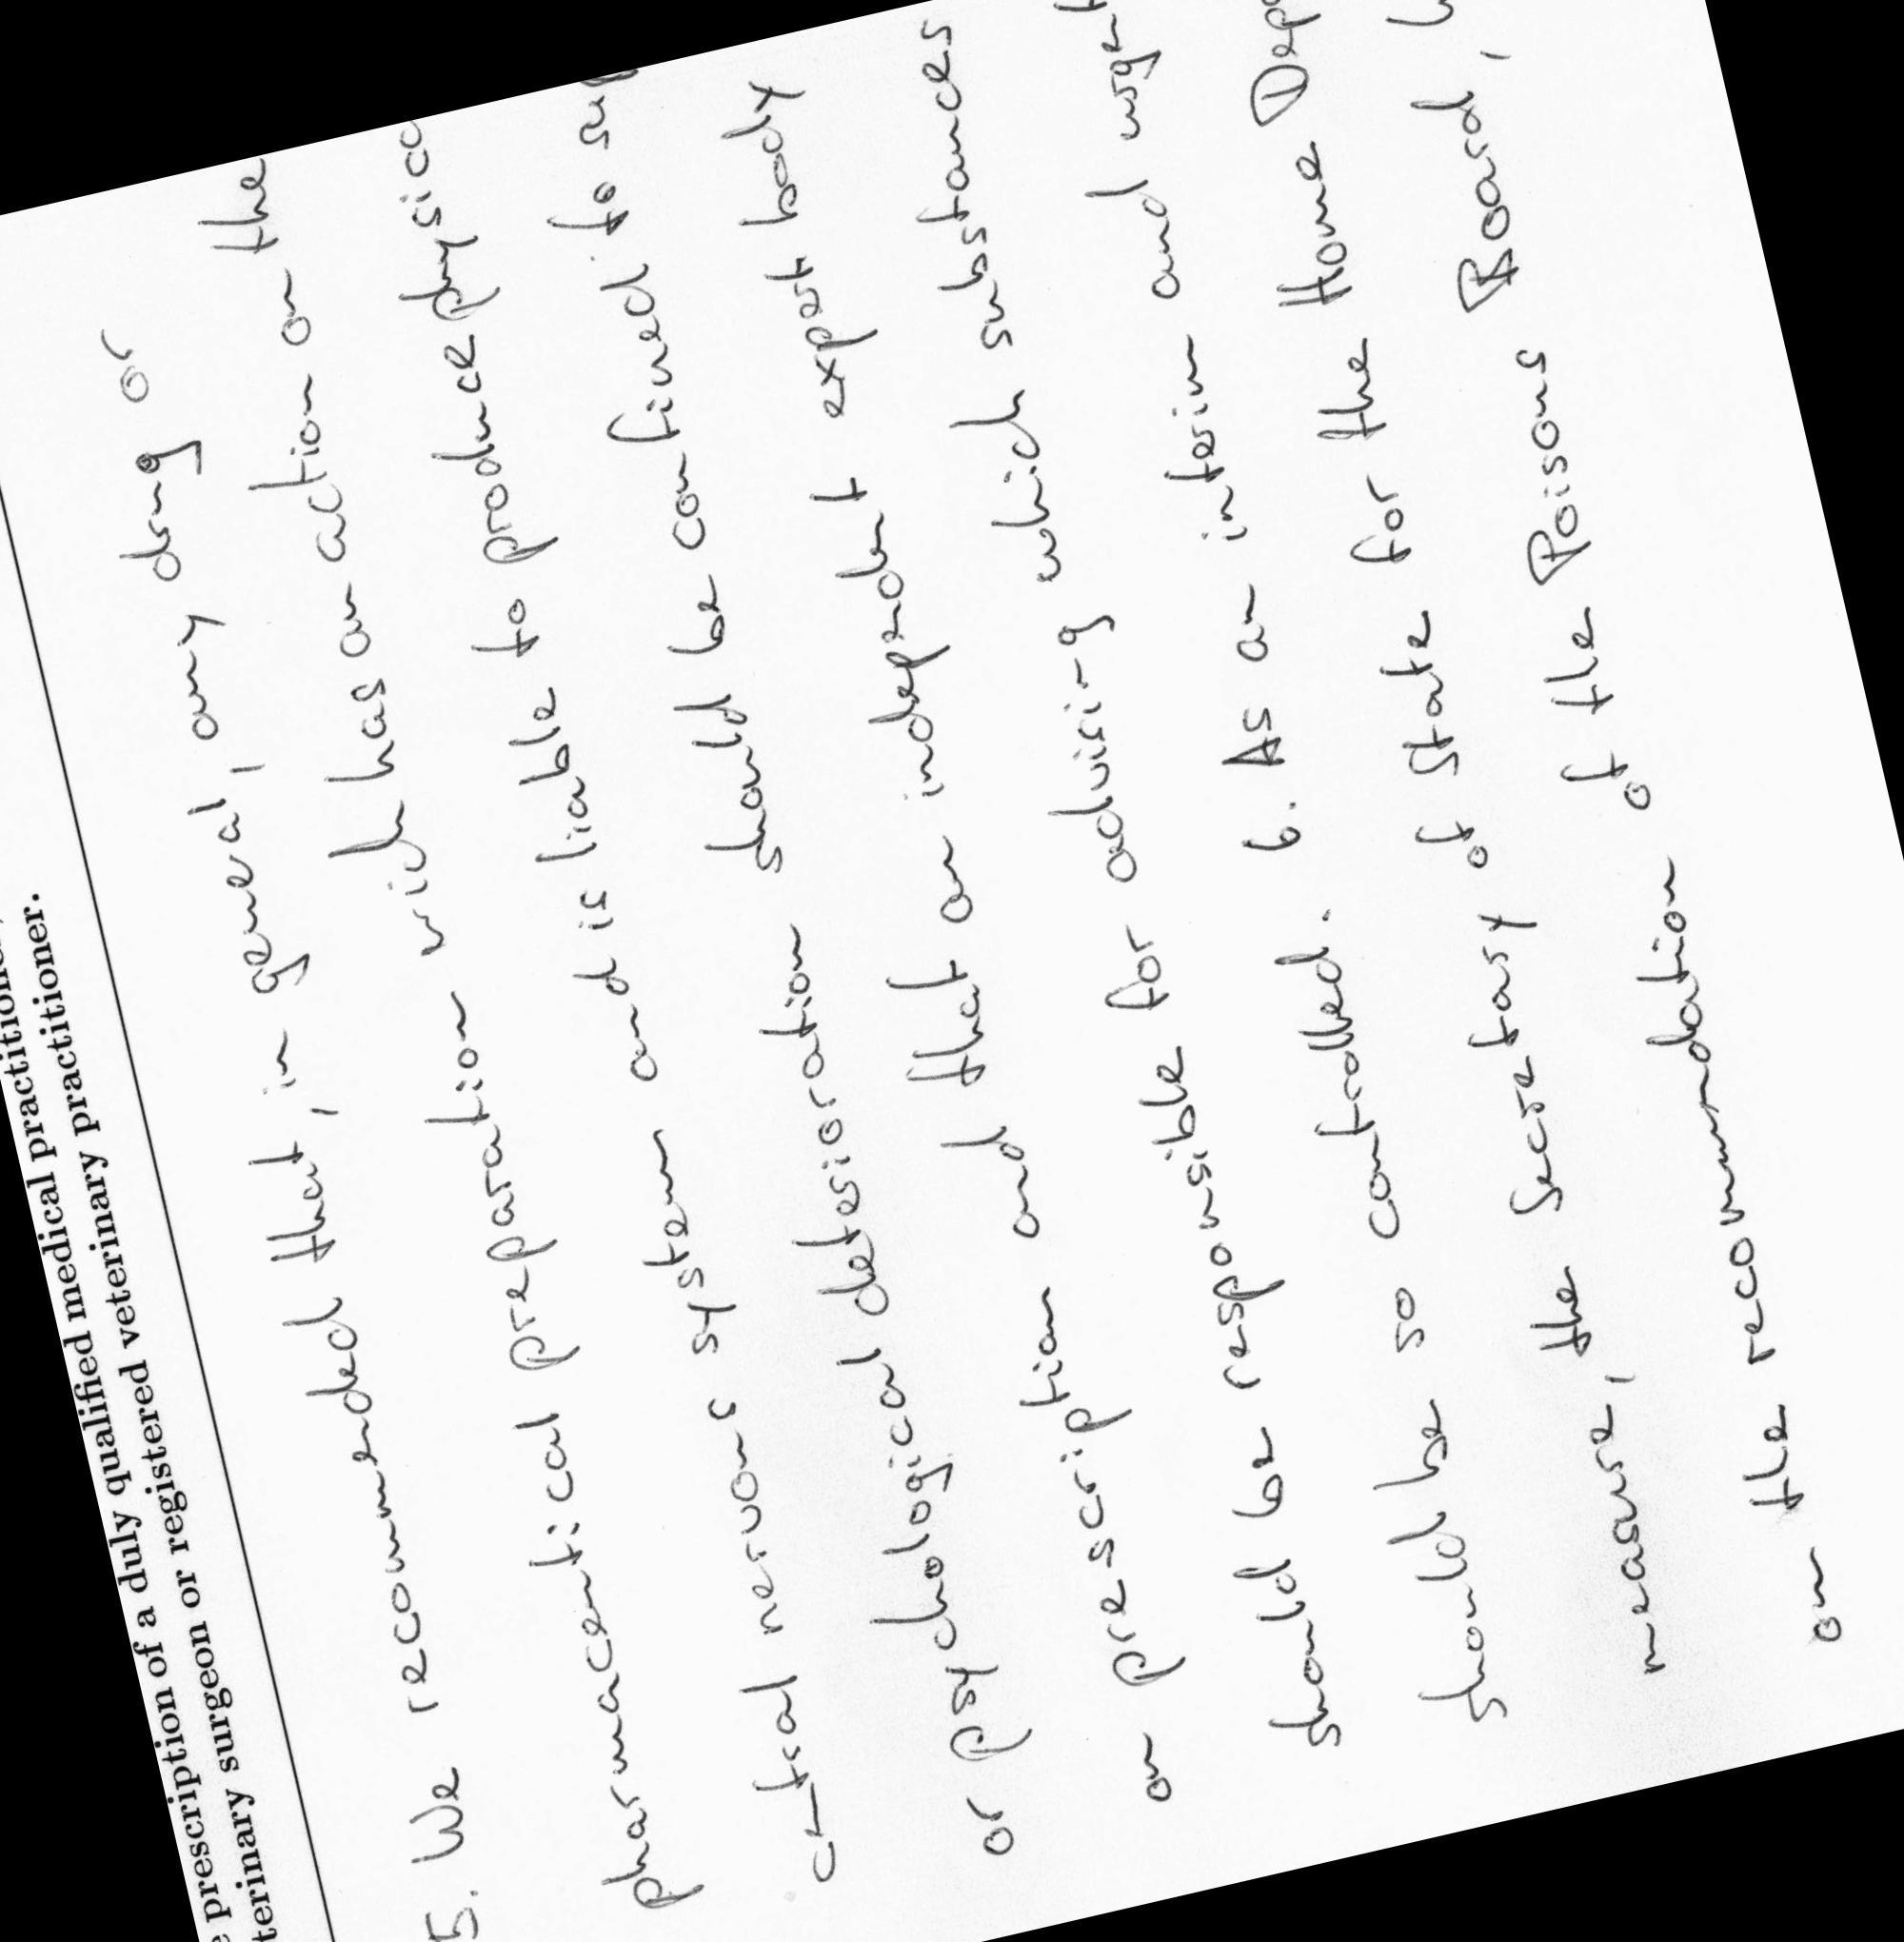 prescription of a duly qualified medical practitioner,
terinary surgeon or registered veterinary practitioner.
5. We recommended that, in general, any drug or
pharmacentical preparation wich has an action on the
central nervous system and is liable to produce physica
or psychological deterioration should be confined to sup
on prescription and that an independent expert body
should be responsible for advising which substances
should be so controlled. 6. As an interim and urgent
measure, the Secretary of State for the Home Dep
on the recommendation of the Poisons Board,